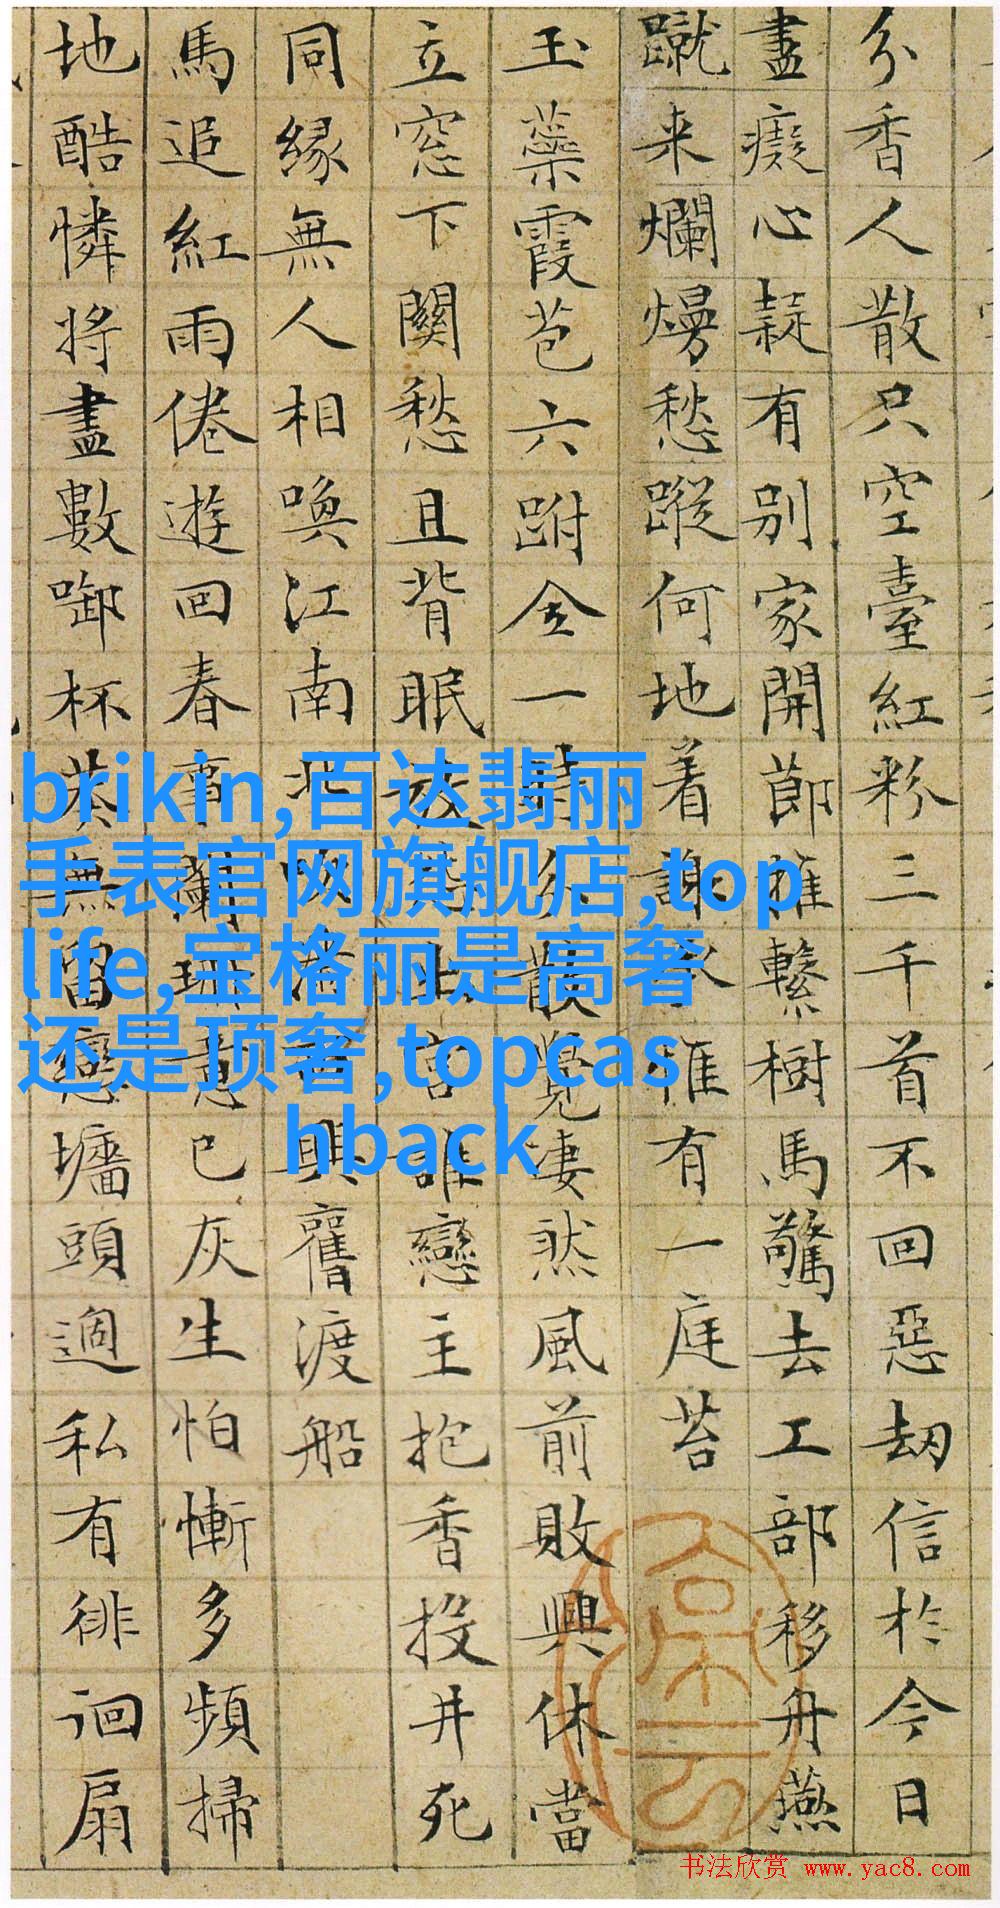 分香人散只空臺紅粉三千首不回惡劫信於今日
盡癡心疑有別家開節推繫樹馬驚去工部移舟燕
蹴来爛熳愁蹤何地着謝承惟有一庭苔
玉蘂霞苞六跗全一時分散覺凄然風前敗興休當
立窓下關愁且背眠放出宮誰戀主抱香投井死
同緣無人相喚江南北吹滿興舊渡船
馬追紅雨倦遊回春事闌珊意已灰生怕慚多頻掃
地酷憐將盡數啣杯無留戀墻頭過私有徘徊扇
brikin,百达翡丽
手表官网旗舰店,top
life,宝格丽是高奢
还是顶奢,topcas
hback
书法欣赏 www.yac8.com